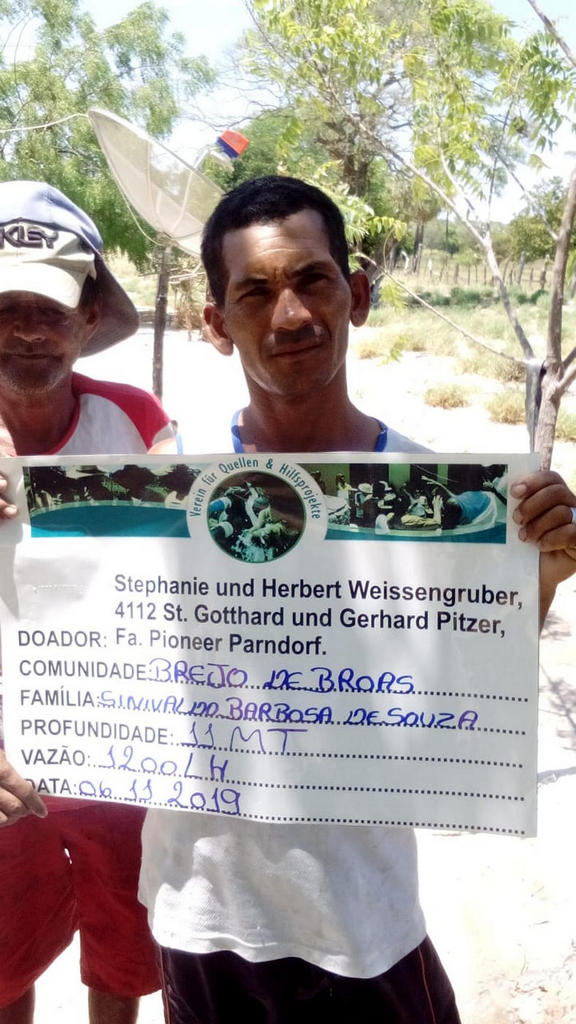 KLEY
Verein für Quellen & Hilfsprojekte
Stephanie und Herbert Weissengruber,
4112 St. Gotthard und Gerhard Pitzer,
DOADOR: Fa. Pioneer Parndorf.
COMUNIDADE: BREJO DE BROAS
FAMÍLIA: SINIVALDO BARBOSA DE SOUZA
PROFUNDIDADE: 11 MT
VAZÃO: 1200 LH
DATA: 06.11.2019